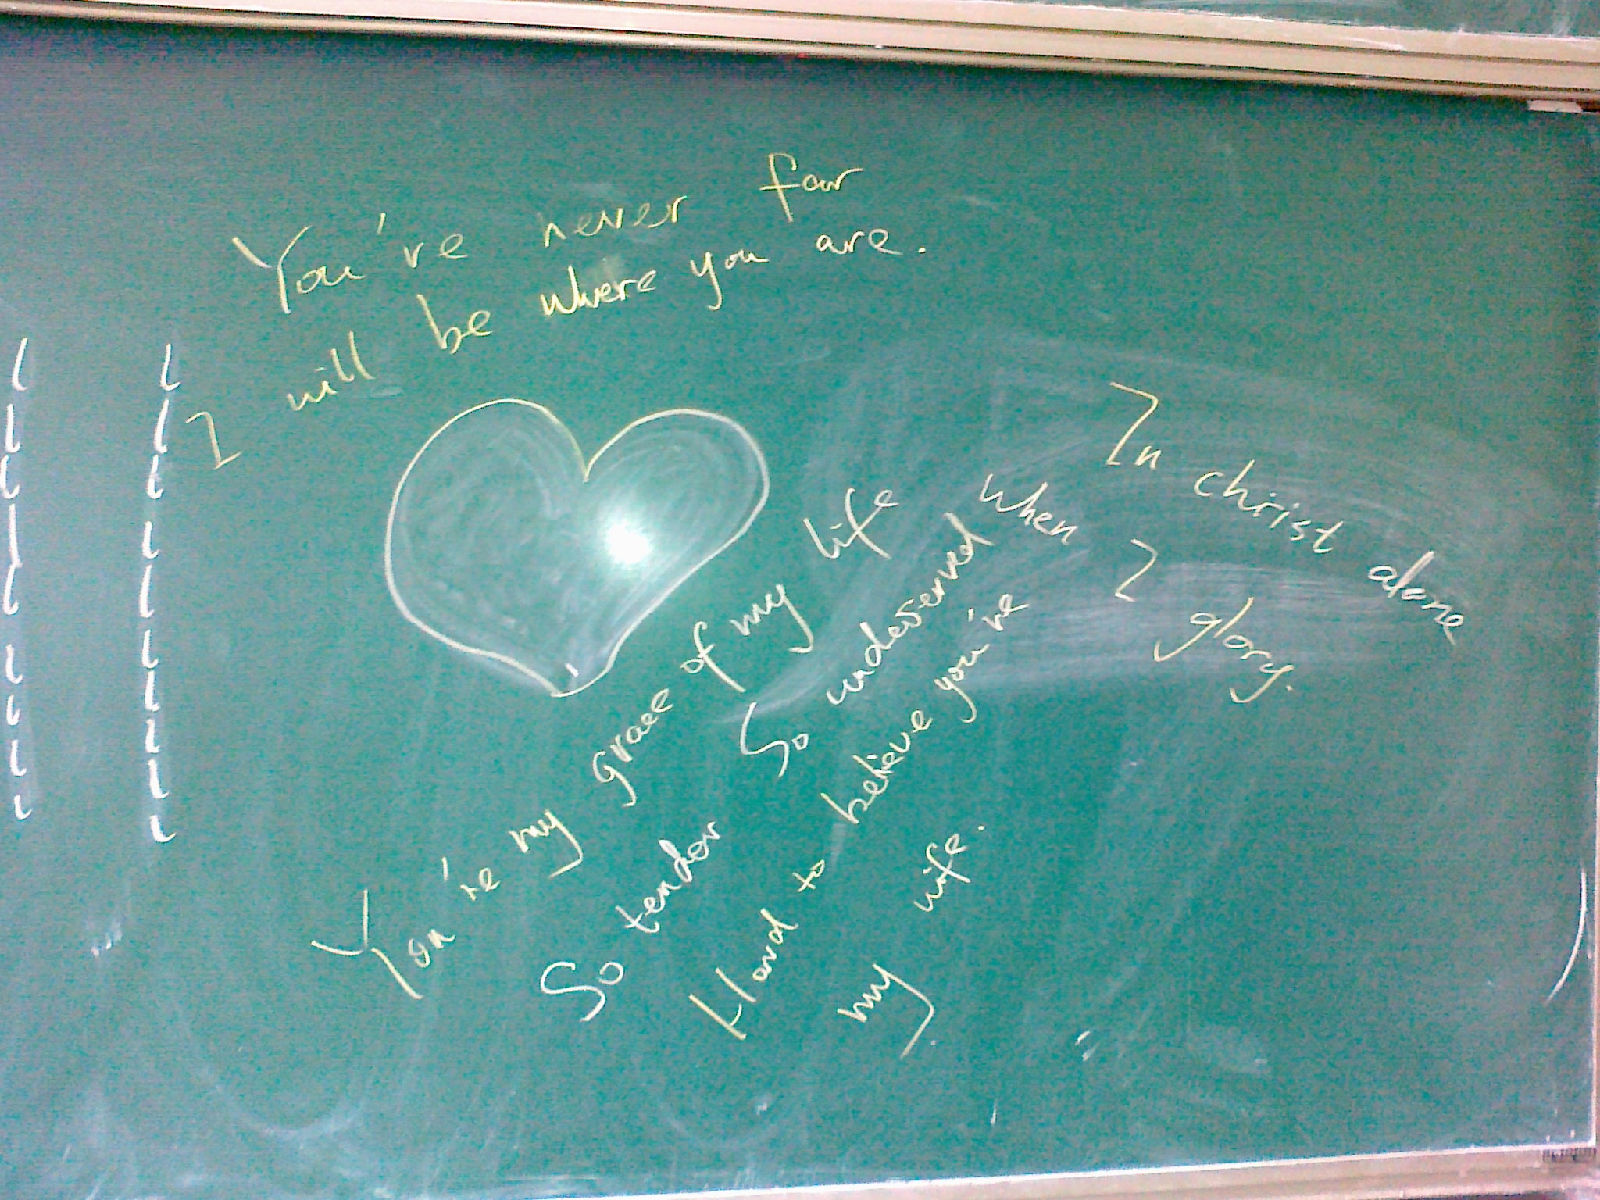 You're never far
I will be where you are.
In christ alone
when I glory.
You're my grace of my life
So tender So undeserved
Hard to believe you're
my wife.